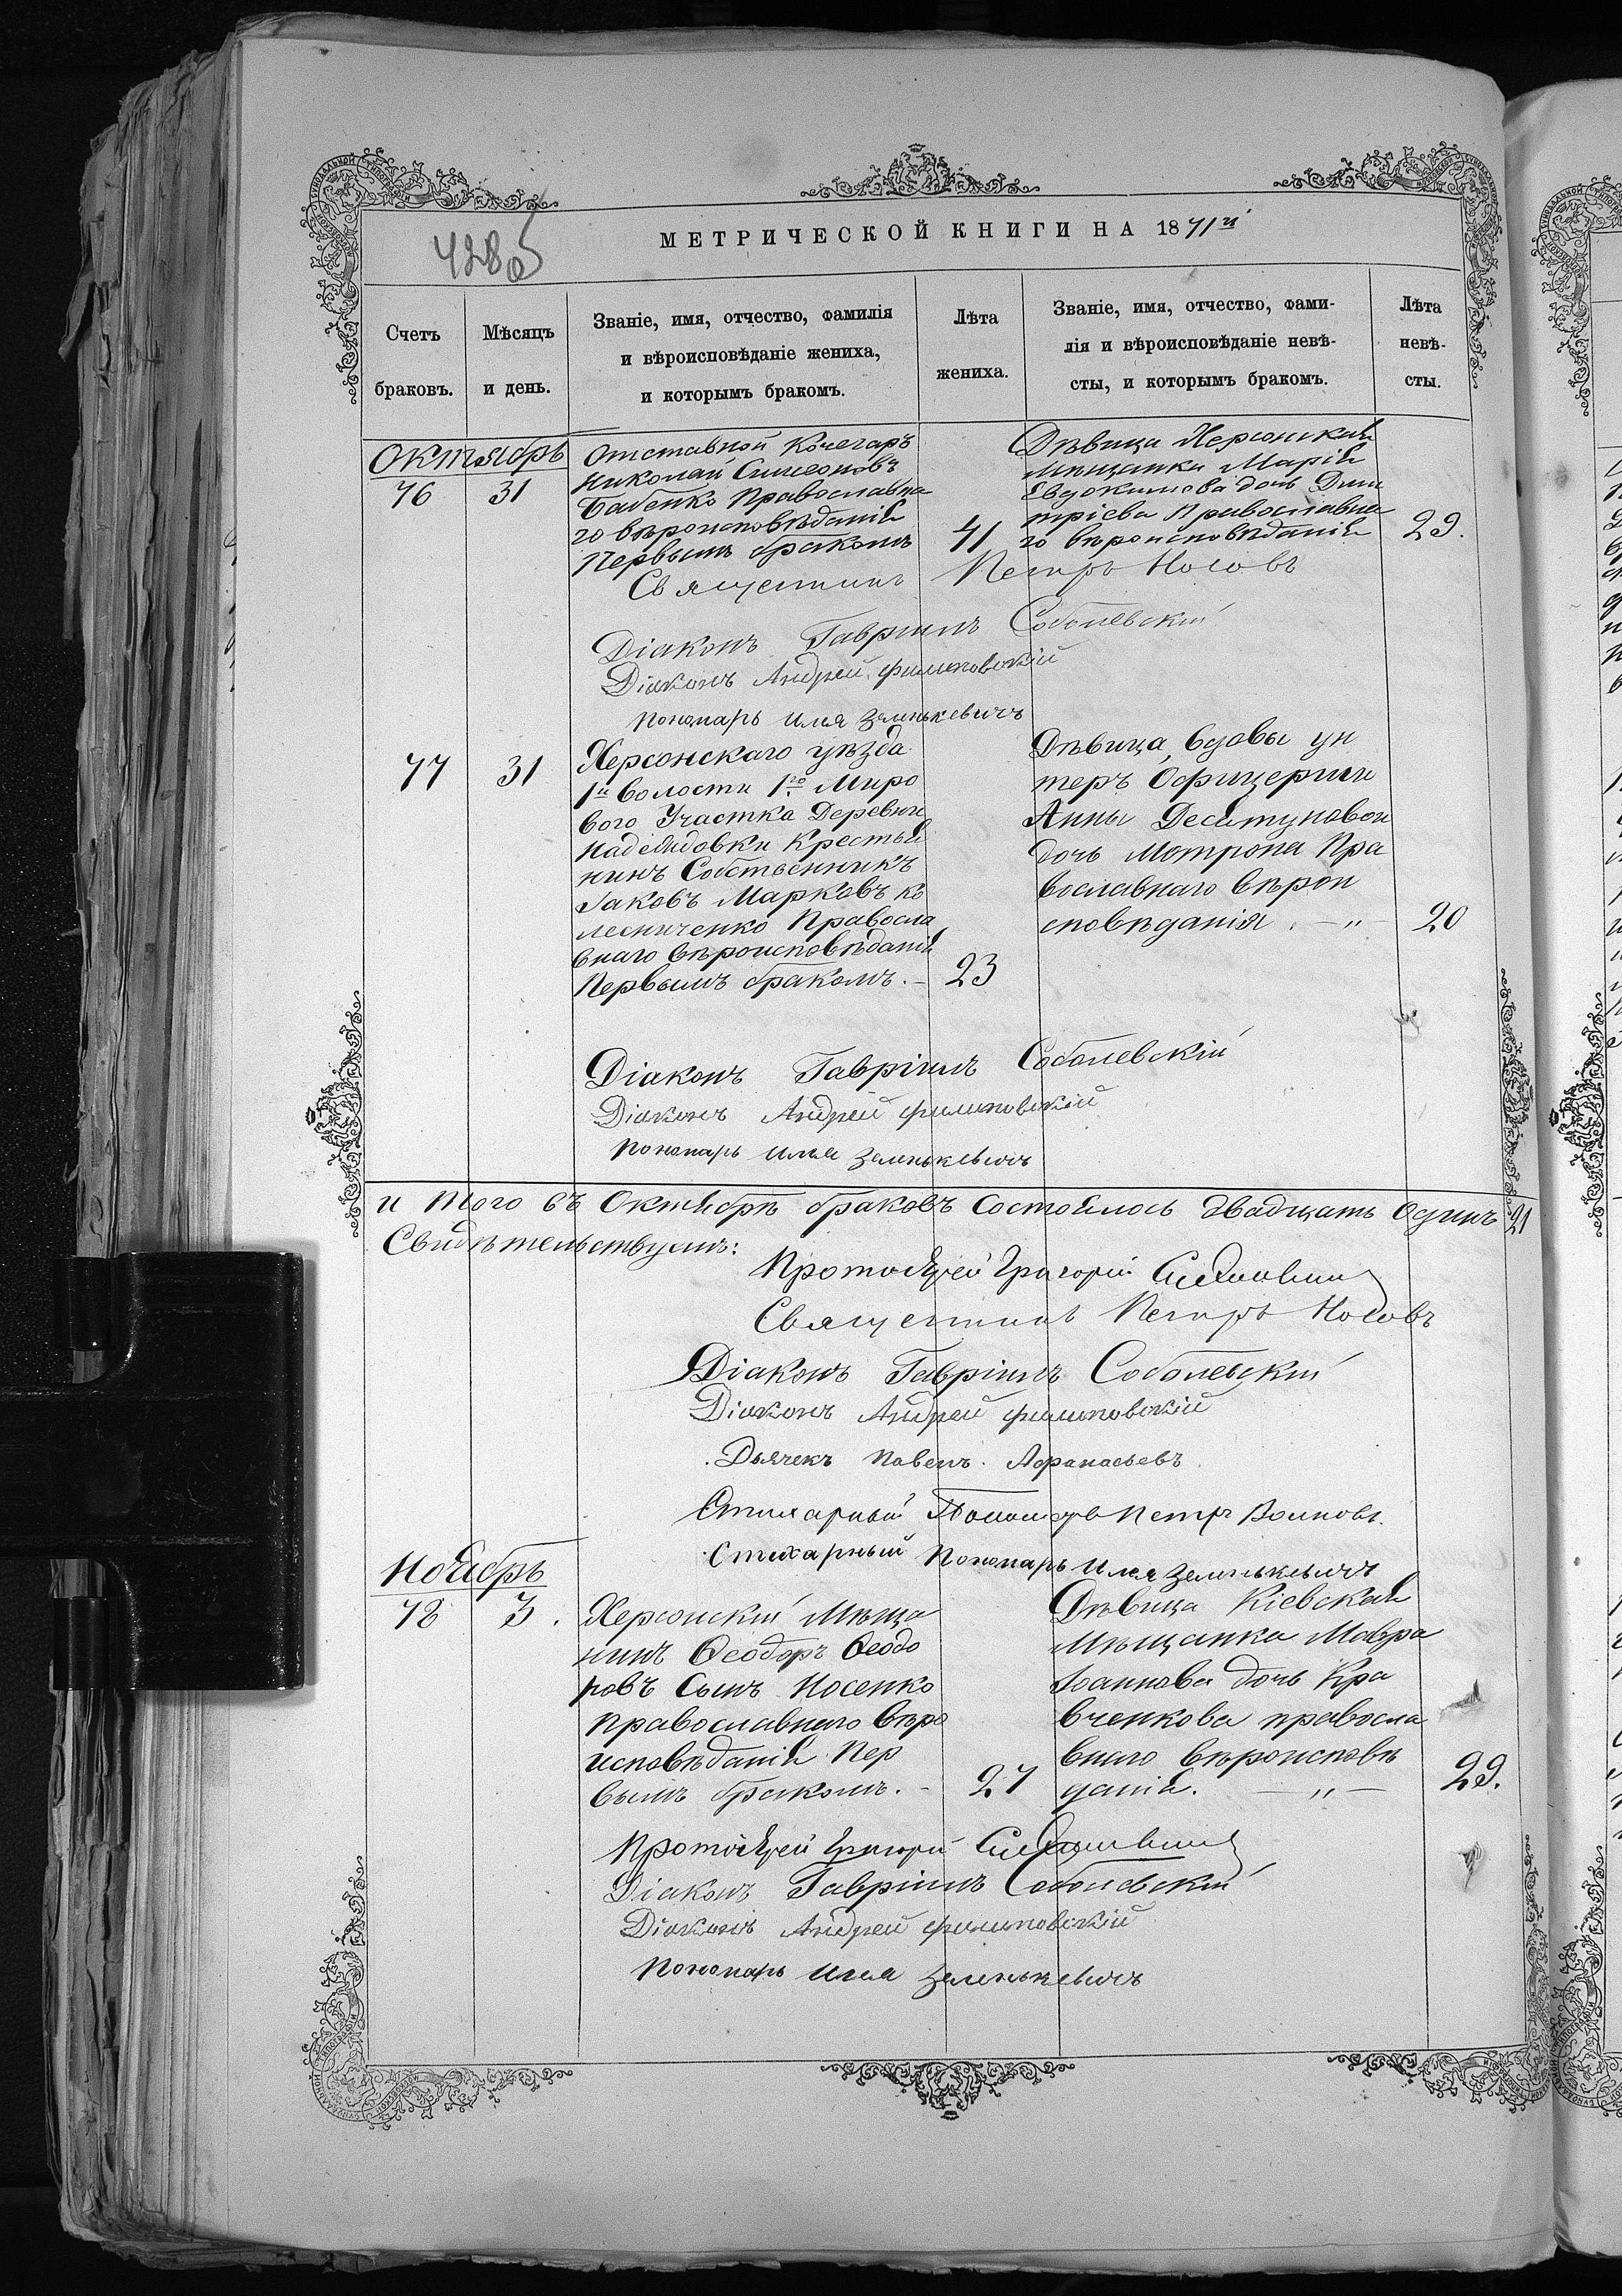 МЕТРИЧЕСКОЙ КНИГИ НА 1871й
Счетъ
браковъ.
Мѣсяцъ
и день.
Званіе, имя, отчество, фамилія
и вѣроисповѣданіе жениха,
и которымъ бракомъ.
Лѣта
жениха.
Званіе, имя, отчество, фами-
лія и вѣроисповѣданіе невѣ-
сты, и которымъ бракомъ.
Лѣта
невѣ-
сты.
Октябрь
76
31
Отставной Кочегаръ
Николай Симеоновъ
Бабенко Православна
го вѣроисповѣданія
Первымъ бракомъ
41
Дѣвица Херсонская
мѣщанка Марія
Евдокимова дочь Дми
тріева Православна
го вѣроисповѣданія
29.
Священникъ Петръ Носовъ
Діаконъ Гавріилъ Соболевскій
Діаконъ Андрей Филиповскій
пономарь Илья Зенькевичъ
77
31
Херсонскаго уѣзда
1й волости 1го Миро
вого Участка Деревни
Надеждовки Крестья
нинъ Собственникъ
Іаковъ Марковъ Ко
лесниченко Правосла
внаго вѣроисповѣданія
Первымъ бракомъ. –
23
Дѣвица, вдовы ун
теръ Офицерши
Анны Десятуновой
дочь Мотрона Пра
вославнаго вѣрои
сповѣданія. – „ –
20
Діаконъ Гавріилъ Соболевскій
Діаконъ Андрей Филиповскій
пономарь Илья Зенькевичъ
и того въ Октябрѣ браковъ состоялось двадцать одинъ 21
Свидѣтельствуемъ:
Протоіерей Григорій
Священникъ Петръ Носовъ
Діаконъ Гавріилъ Соболевскій
Діаконъ Андрей Филиповскій
Дьячекъ Павелъ Афанасьевъ
Стихарный Пономарь Петръ Волковъ.
Стихарный Пономарь Илья Зенькевичъ
Ноябрь
78
3.
Херсонскій Мѣща
нинъ Ѳеодоръ Ѳеодо
ровъ Сынъ Носенко
Православнаго вѣро
исповѣданія Пер
вымъ бракомъ. –
27
Дѣвица Кіевская
Мѣщанка Мавра
Іоаннова дочь Кра
вченкова правосла
внаго вѣроисповѣ
данія. – „ –
29.
Протоіерей Григорій
Діаконъ Гавріилъ Соболевскій
Діаконъ Андрей Филиповскій
Пономарь Илья Зенькевичъ